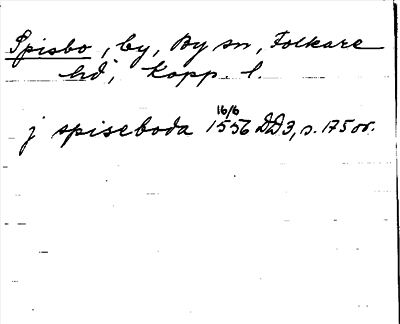 Spisbo, by, By sn, Folkare
hd, Kopp. l.
16/6
j spiseboda 1556 DD3, s. 175 or.